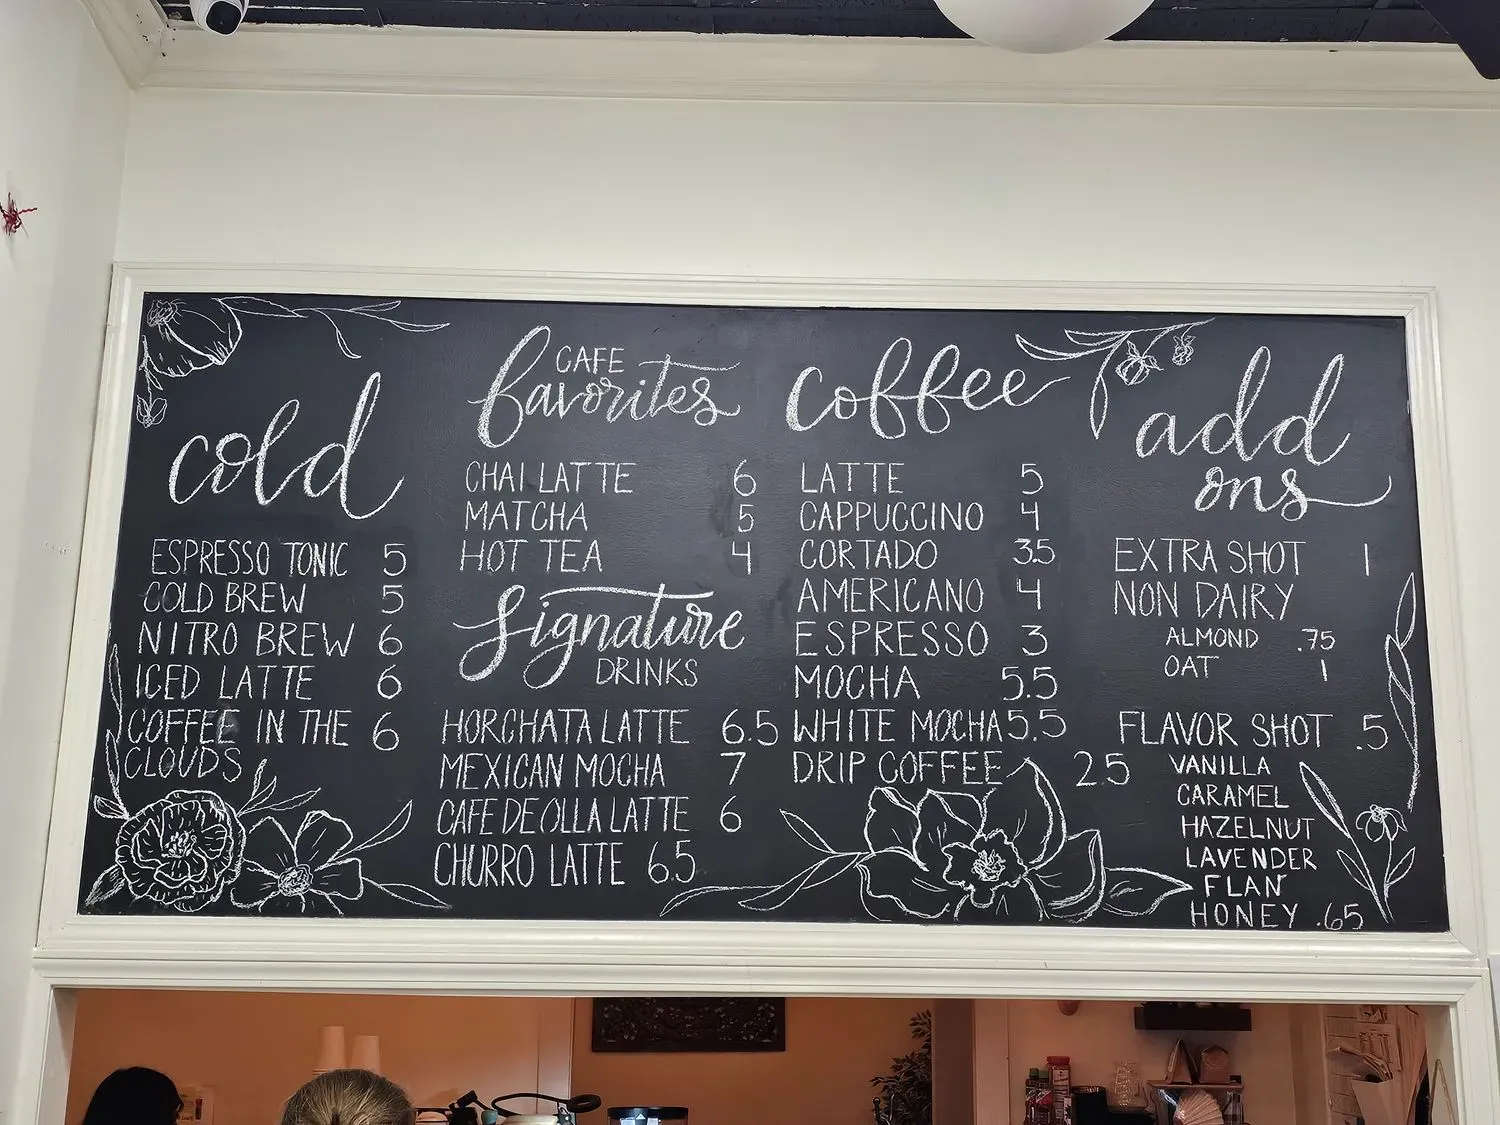 cold
ESPRESSO TONIC 5
COLD BREW 5
NITRO BREW 6
ICED LATTE 6
COFFEE IN THE 6
CLOUDS
CAFE
favorites
CHAI LATTE 6
MATCHA 5
HOT TEA 4
Signature
DRINKS
HORCHATA LATTE 6.5
MEXICAN MOCHA 7
CAFE DE OLLA LATTE 6
CHURRO LATTE 6.5
coffee
LATTE 5
CAPPUCCINO 4
CORTADO 3.5
AMERICANO 4
ESPRESSO 3
MOCHA 5.5
WHITE MOCHA 5.5
DRIP COFFEE 2.5
add
ons
EXTRA SHOT 1
NON DAIRY
ALMOND .75
OAT 1
FLAVOR SHOT .5
VANILLA
CARAMEL
HAZELNUT
LAVENDER
FLAN
HONEY .65